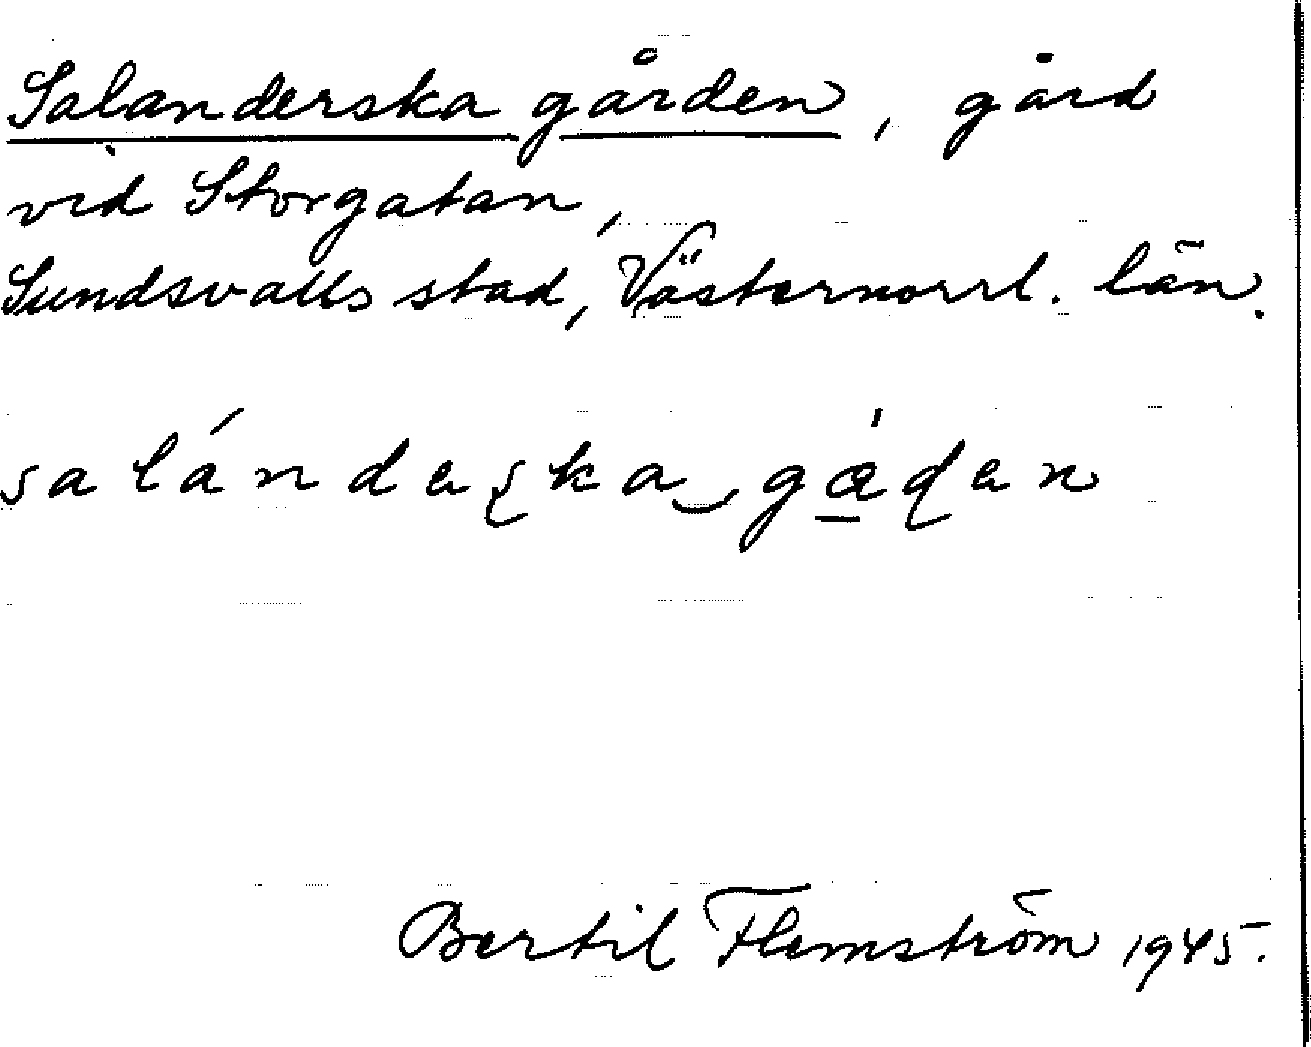 Salanderska gården, gård
vid Storgatan,
Sundsvalls stad, Västernorrl. län.
salándeʂka‿gǻɖen
Bertil Flemström 1945.